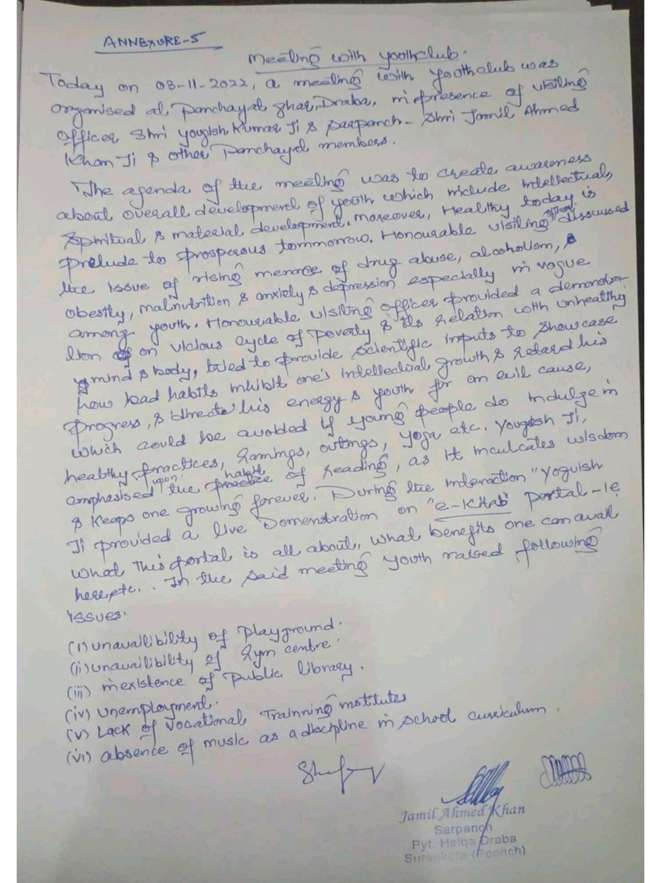 ANNEXURE-5
Meeting with youthclub.
Today on 08-11-2022, a meeting with Youthclub was
organised at Panchayat Ghar, Draba, in presence of visiting
officer Shri Yougish Kumar Ji & Sarpanch - Shri Jamil Ahmed
Khan Ji & other Panchayat members.
The agenda of the meeting was to create awareness
about overall development of youth which include intellectual,
spiritual & material development. Moreover, Healthy today is
prelude to prosperous tommorrow. Honourable visiting officer discussed
the issue of rising menace of drug abuse, alcoholism,
obesity, malnutrition & anxiety & depression especially in vogue
among youth. Honourable visiting officer provided a demonstra-
tion on vicious cycle of poverty & its relation with unhealthy
mind & body, tried to provide scientific inputs to showcase
how bad habits inhibit one's intellectual growth & retard his
progress, & directs his energy & youth for an evil cause,
which could be avoided if young people do indulge in
healthy practices, Gamings, outings, yoga etc. Yougish Ji,
emphasised upon the habit of reading, as it inculcates wisdom
& keeps one growing forever. During the interaction "Yoguish
Ji provided a live Domenstration on "e-Kitab" portal - ie
what this portal is all about, what benefits one can avail
here, etc.. In the said meeting youth raised following
issues.
(i) unavailibility of playground.
(ii) unavailibility of Gym centre.
(iii) inexistence of public library.
(iv) unemployment.
(v) Lack of vocational Trainning institutes
(vi) absence of music as a discipline in school curriculum.
Jamil Ahmed Khan
Sarpanch
Pyt. Halqa Draba
Surankote (Poonch)